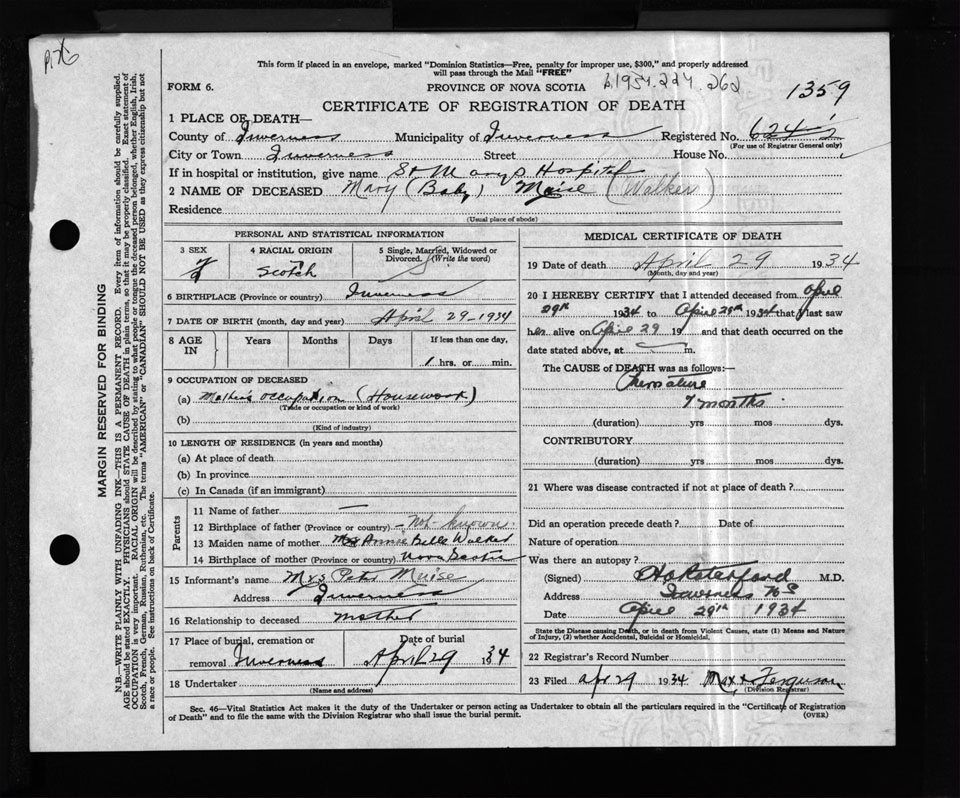 P. 76
This form if placed in an envelope, marked "Dominion Statistics—Free, penalty for improper use, $300," and properly addressed
will pass through the Mail "FREE"
FORM 6.
PROVINCE OF NOVA SCOTIA
1954.227.262
1359
CERTIFICATE OF REGISTRATION OF DEATH
1 PLACE OF DEATH—
County of Inverness Municipality of Inverness Registered No. 624½
(For use of Registrar General only)
City or Town Inverness Street House No.
If in hospital or institution, give name St Marys Hospital
2 NAME OF DECEASED Mary (Baby) Muise (Walker)
Residence
(Usual place of abode)
PERSONAL AND STATISTICAL INFORMATION
3 SEX
F
4 RACIAL ORIGIN
Scotch
5 Single, Married, Widowed or
Divorced. (Write the word)
S
6 BIRTHPLACE (Province or country) Inverness
7 DATE OF BIRTH (month, day and year) April 29-1934
8 AGE IN
Years Months Days If less than one day,
1 hrs. or min.
9 OCCUPATION OF DECEASED
(a) Mothers occupation (Housework)
(Trade or occupation or kind of work)
(b)
(Kind of industry)
10 LENGTH OF RESIDENCE (in years and months)
(a) At place of death
(b) In province
(c) In Canada (if an immigrant)
Parents
11 Name of father —
12 Birthplace of father (Province or country) - not known.
13 Maiden name of mother Annie Belle Walker
14 Birthplace of mother (Province or country) Nova Scotia
15 Informant's name Mrs Peter Muise
Address Inverness
16 Relationship to deceased mother
17 Place of burial, cremation or
removal Inverness
Date of burial
April 29 1934
18 Undertaker
(Name and address)
MEDICAL CERTIFICATE OF DEATH
19 Date of death April 29 1934
(Month, day and year)
20 I HEREBY CERTIFY that I attended deceased from April
29th 1934 to April 29th 1934 that I last saw
her alive on April 29 19 and that death occurred on
date stated above, at m.
The CAUSE of DEATH was as follows:—
Premature
7 months.
(duration) yrs mos dys.
CONTRIBUTORY
(duration) yrs mos dys.
21 Where was disease contracted if not at place of death?
Did an operation precede death? Date of
Nature of operation
Was there an autopsy?
(Signed) M.D.
Address Inverness NS
Date April 29th 1934
State the Disease causing Death, or in death from Violent Causes, state (1) Means and Nature
of Injury, (2) whether Accidental, Suicidal or Homicidal.
22 Registrar's Record Number
23 Filed Apr 29 1934 Ferguson
(Division Registrar)
Sec. 46—Vital Statistics Act makes it the duty of the Undertaker or person acting as Undertaker to obtain all the particulars required in the "Certificate of Registration
of Death" and to file the same with the Division Registrar who shall issue the burial permit.
(OVER)
MARGIN RESERVED FOR BINDING
N.B.—WRITE PLAINLY WITH UNFADING INK—THIS IS A PERMANENT RECORD. Every item of information should be carefully supplied.
AGE should be stated EXACTLY. PHYSICIANS should STATE CAUSE OF DEATH in plain terms, so that it may be properly classified. Exact statement of
OCCUPATION is very important. RACIAL ORIGIN will be described by stating to what people or tongue the deceased person belonged, whether English, Irish,
Scotch, French, German, Russian, Ruthenian, etc. The terms "AMERICAN" or "CANADIAN" SHOULD NOT BE USED as they express citizenship but not
a race or people. See instructions on back of Certificate.